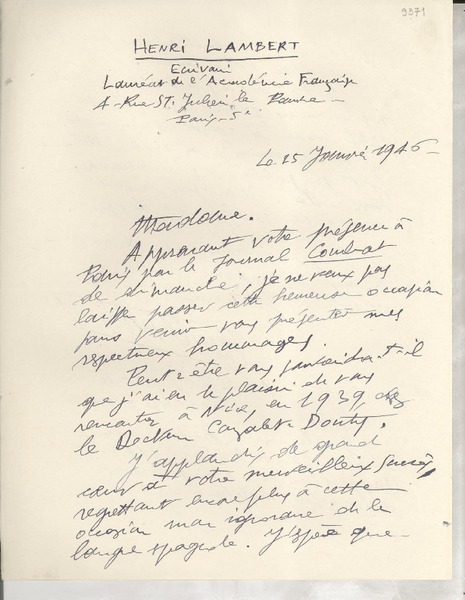 9371
HENRI LAMBERT
Ecrivain
Lauréat de l'Académie Française
4 - Rue St. Julien le Pauvre -
Paris - 5e
Le 25 Janvier 1946 -
Madame.
Apprenant votre présence à
Paris par le Journal Combat
de dimanche, je ne veux pas
laisser passer cette heureuse occasion
sans venir vous présenter mes
respectueux hommages.
Peut-être vous souviendra-t-il
que j'ai eu le plaisir de vous
rencontrer à Nice, en 1939, chez
le Docteur Cazalet
J'applaudis de grand
cœur à votre merveilleux succès,
regrettant encore plus à cette
occasion mon ignorance de la
langue espagnole. J'espère que